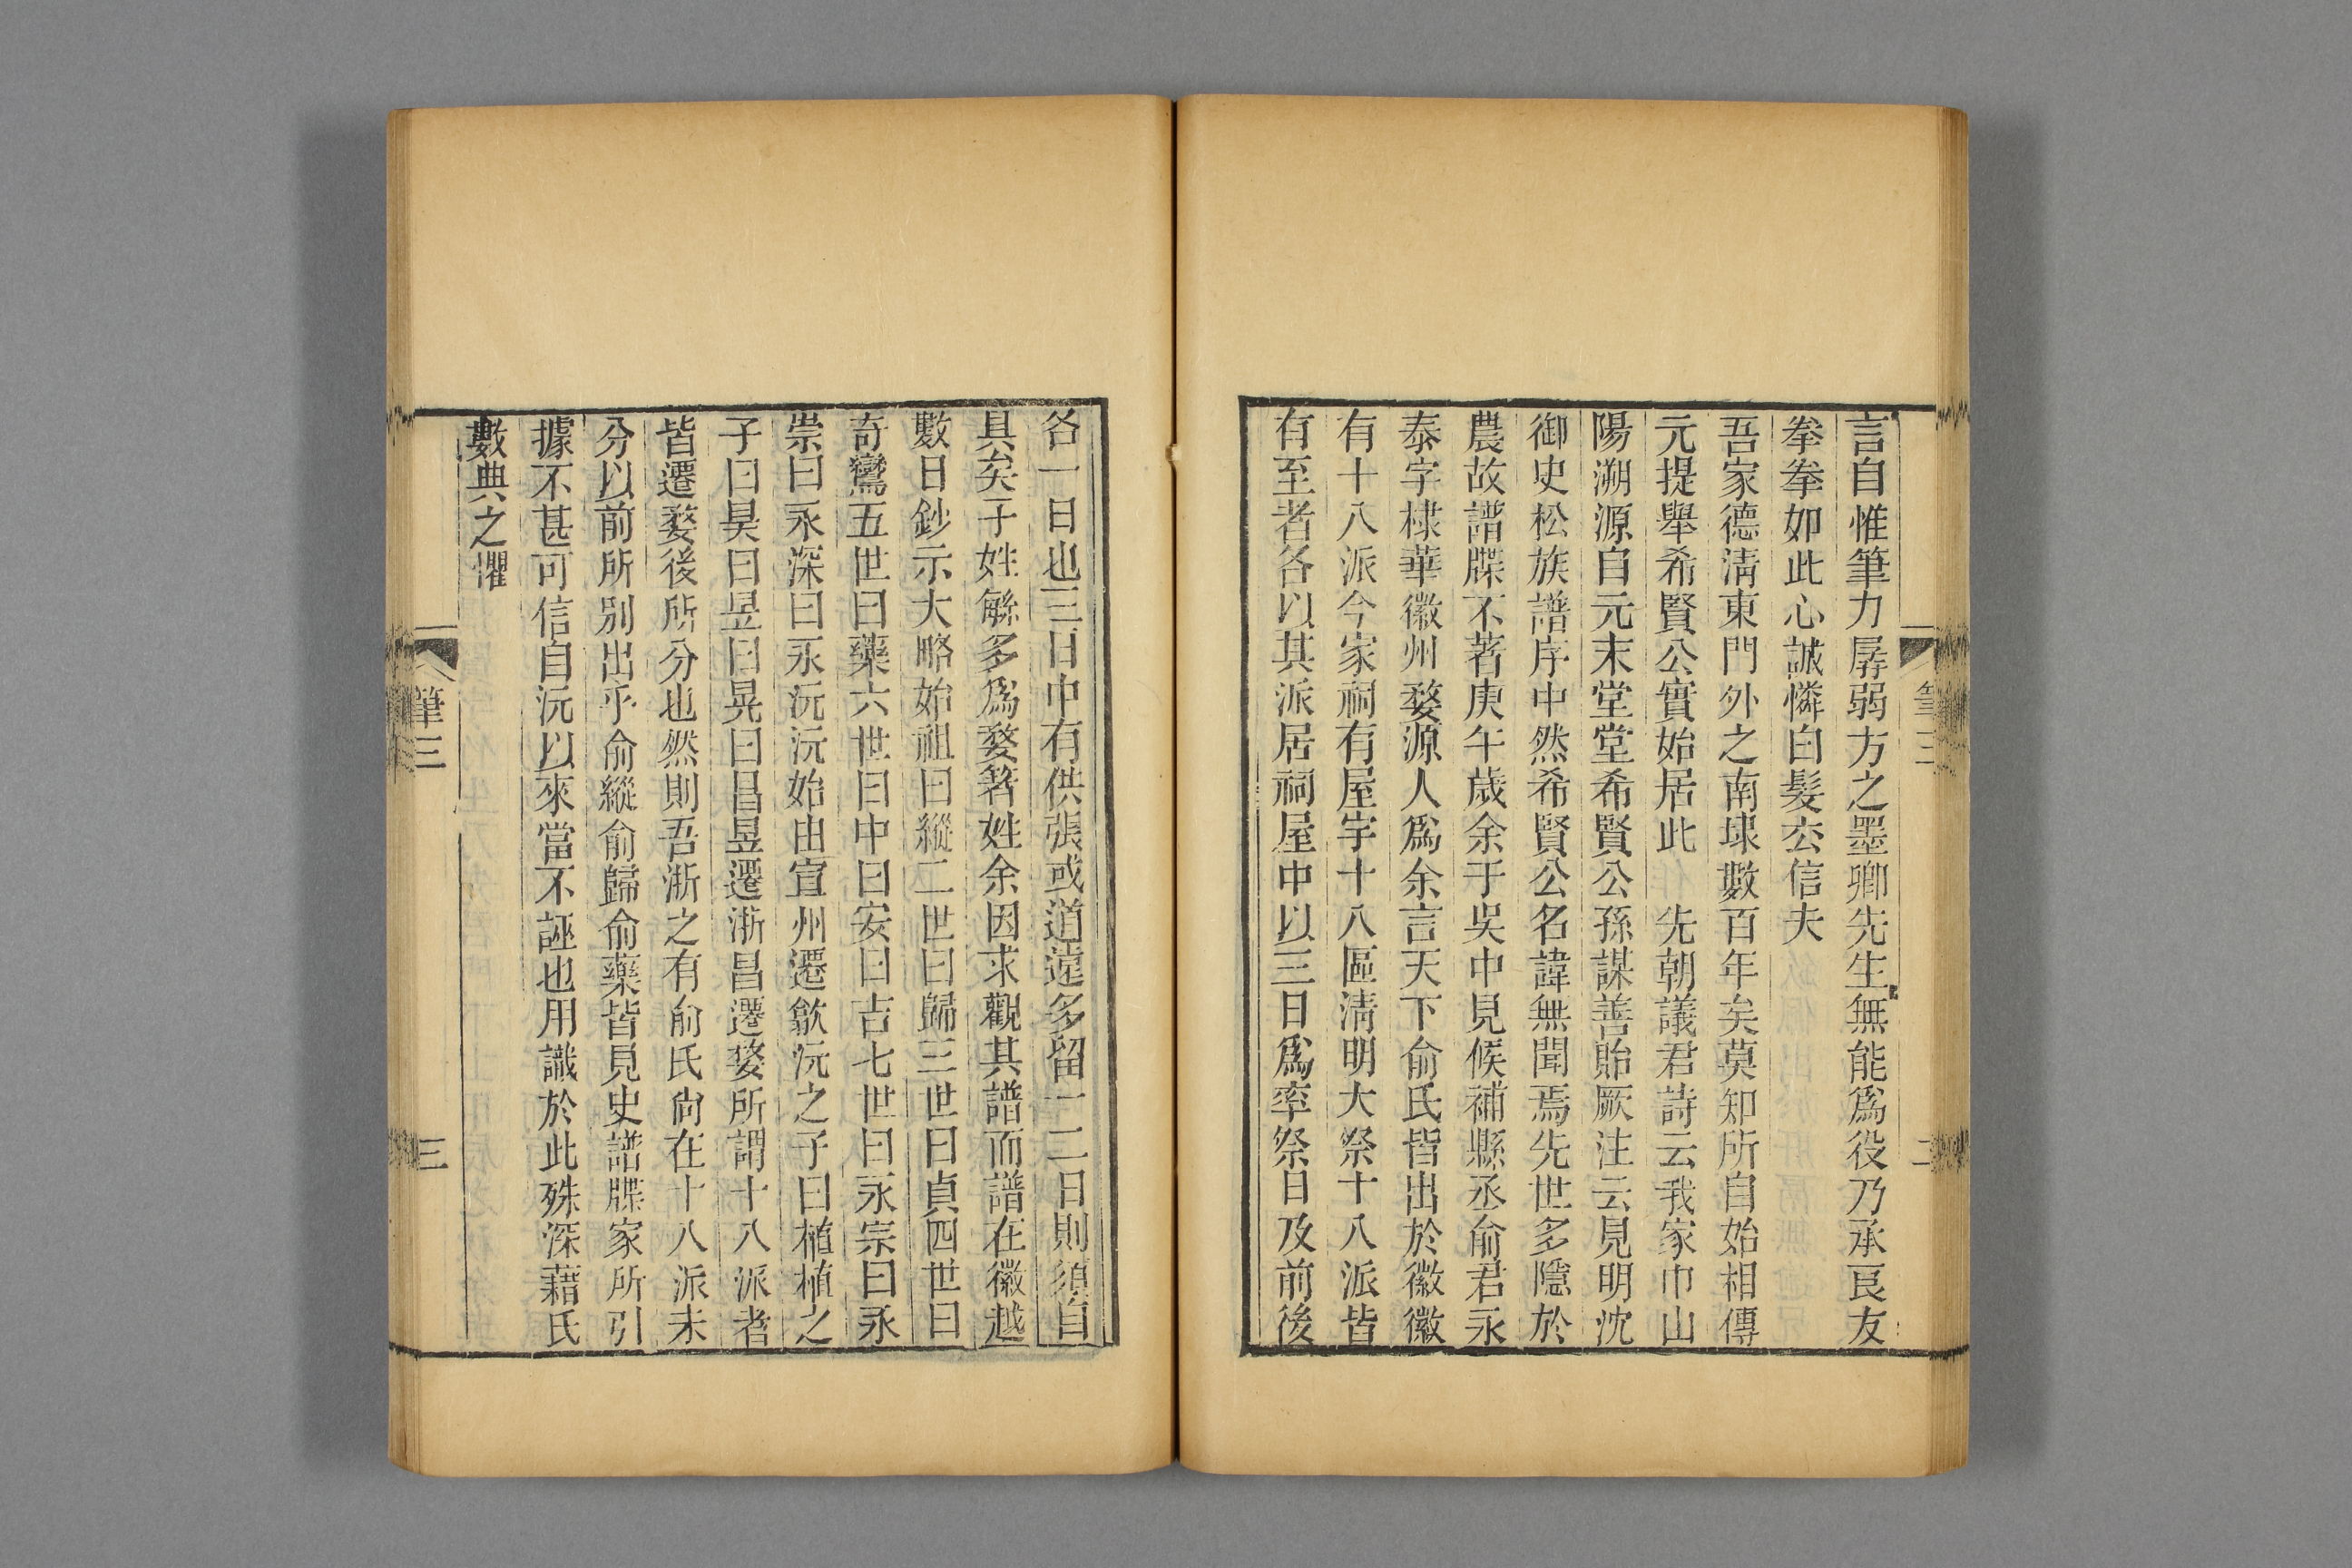 言自惟筆力孱弱方之墨卿先生無能爲役乃承良友
拳拳如此心誠憐白髮玄信夫
吾家德淸東門外之南埭數百年矣莫知所自始相傳
元提舉希賢公實始居此 先朝議君詩云我家巾山
陽溯源自元末堂堂希賢公孫謀善貽厥注云見明沈
御史松族譜序中然希賢公名諱無聞焉先世多隱於
農故譜牒不著庚午歲余于吳中見候補縣丞俞君永
泰字棣華徽州婺源人爲余言天下俞氏皆出於徽徽
有十八派今家祠有屋宇十八區淸明大祭十八派皆
有至者各以其派居祠屋中以三日爲率祭日及前後
筆三
二
各一日也三日中有供張或道遠多留一二日則須自
具矣子姓緐多爲婺著姓余因求觀其譜而譜在徽越
數日鈔示大略始祖曰縱二世曰歸三世曰貞四世曰
奇鸞五世曰藥六世曰中曰安曰吉七世曰永宗曰永
崇曰永深曰永沅沅始由宣州遷歙沅之子曰植植之
子曰昊曰昱曰晃曰昌昱遷浙昌遷婺所謂十八派者
皆遷婺後所分也然則吾浙之有俞氏尙在十八派未
分以前所別出乎俞縱俞歸俞藥皆見史譜牒家所引
據不甚可信自沅以來當不誣也用識於此殊深藉氏
數典之懼
筆三
三